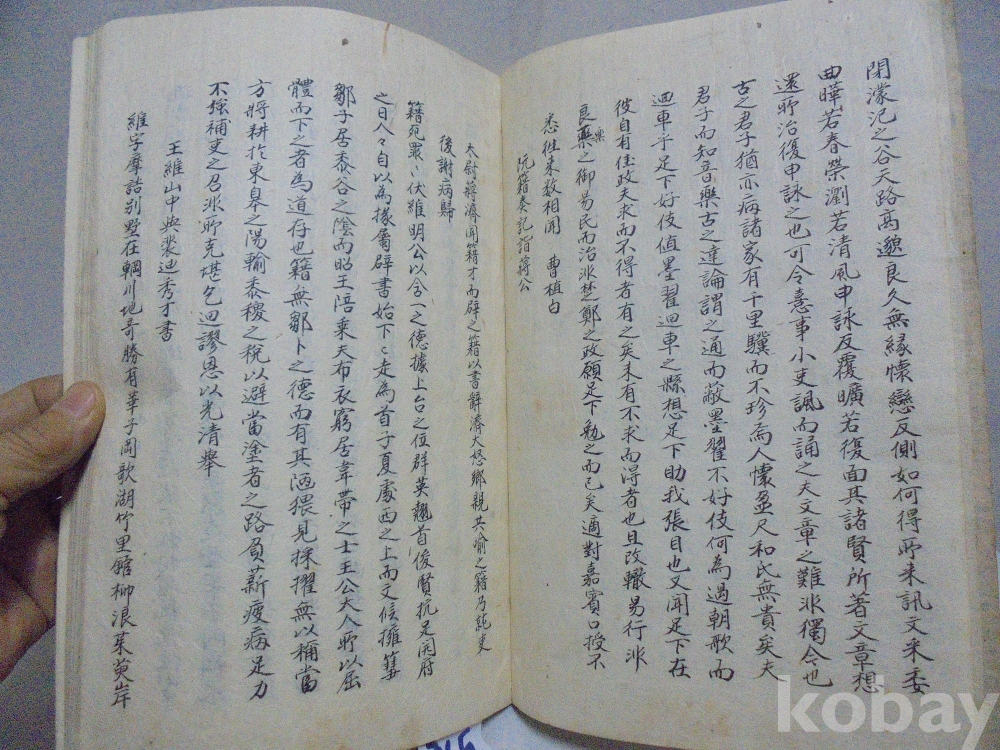 閉濛汜之谷天路高邈良久無緣懷戀反側如何得所来訊文采委
曲曄若春榮瀏若清風申詠反覆曠若復面其諸賢所著文章想
還所治復申詠之也可令憙事小吏諷而誦之夫文章之難非獨今也
古之君子猶亦病諸家有千里驥而不珍焉人懷盈尺和氏無貴矣夫
君子而知音樂古之達論謂之通而蔽墨翟不好伎何為過朝歌而
迴車乎足下好伎値墨翟迴車之縣想足下助我張目也又聞足下在
彼自有佳政夫求而不得者有之矣未有不求而得者也且改轍易行非
良藥之御易民而治非楚鄭之政願足下勉之而已矣適對嘉賓口授不
樂
悉徃来数相聞 曹植白
阮籍奏記詣蔣公
太尉蔣濟聞籍才而辟之籍以書辭濟大怒鄉親共喻之籍乃就吏
後謝病歸
籍死罪〻伏維明公以含一之德據上台之位群英翹首俊賢抗足開府
之日人々自以為掾屬辟書始下〻走為首子夏處西之上而文侯擁篲
鄒子居黍谷之陰而昭王陪乘夫布衣窮居韋帶之士王公大人所以屈
體而下之者為道存也籍無鄒卜之德而有其陋猥見採擢無以稱當
方將耕於東皐之陽輸黍稷之稅以避當塗者之路負薪疲病足力
不强補吏之召非所克堪乞迴謬恩以光清舉
王維山中與裴迪秀才書
維字摩詰別墅在輞川地奇勝有華子岡歌湖竹里館柳浪茱萸岸
kobay